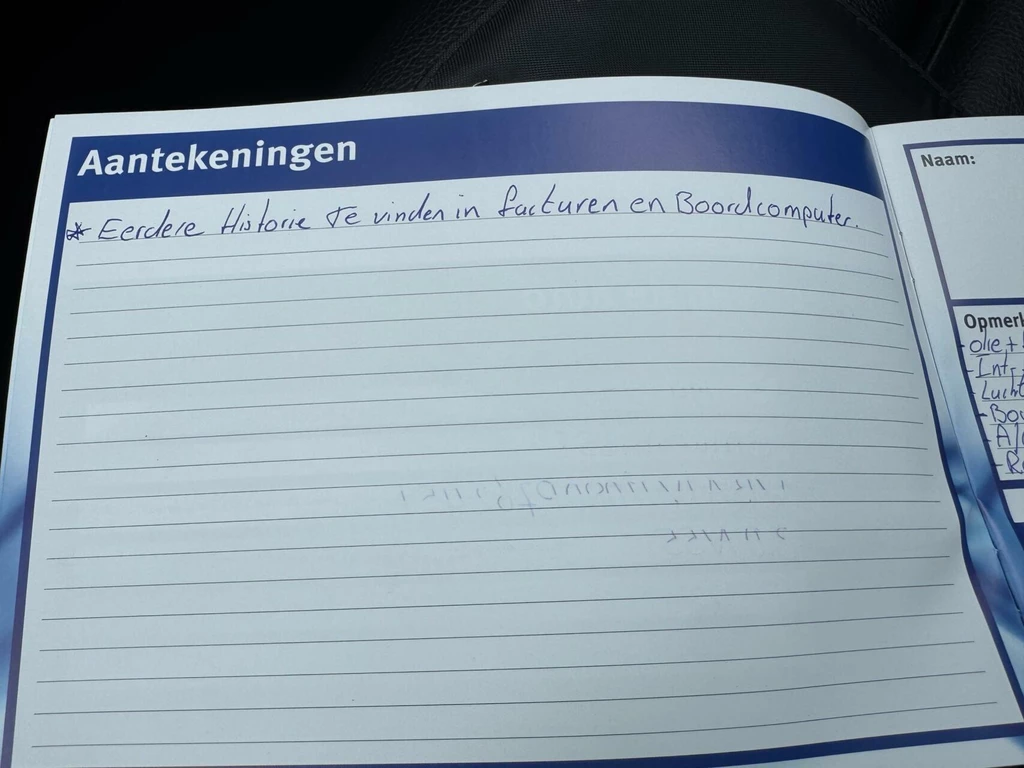 Aantekeningen
* Eerdere Historie Te vinden in facturen en Boordcomputer.
Naam:
- olie +
- Int
- Lucht